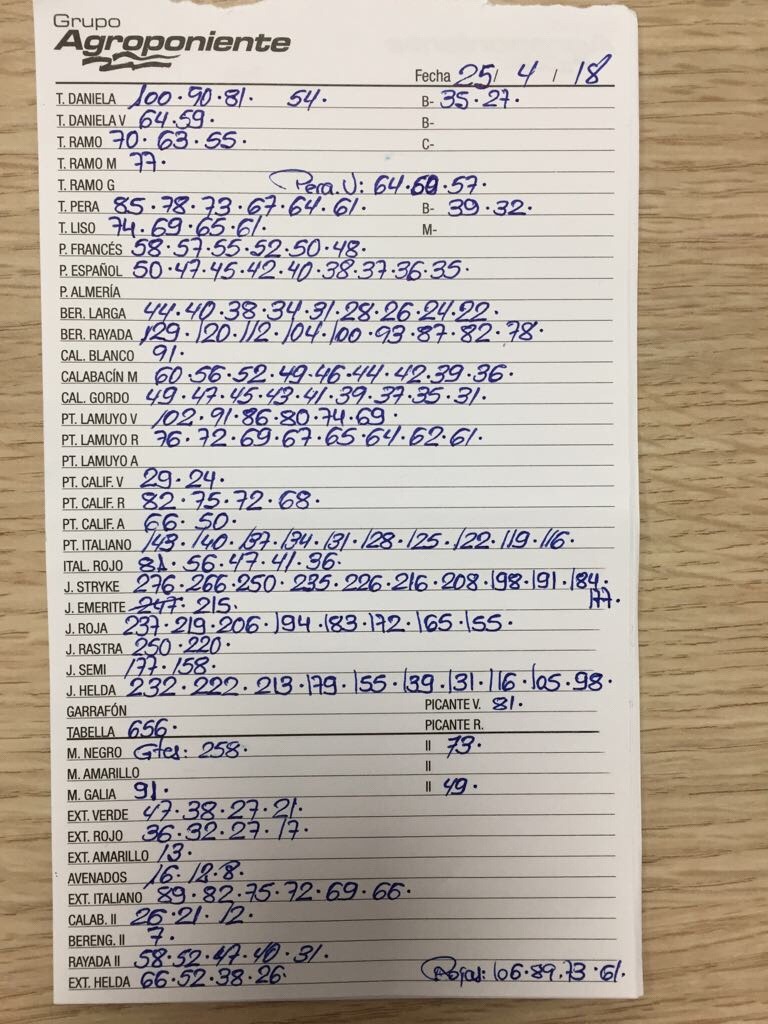 Grupo
Agroponiente
Fecha 25/ 4 / 18
T. DANIELA 100·90·81· 54· B- 35·27·
T. DANIELA V 64·59· B-
T. RAMO 70·63·55· C-
T. RAMO M 77·
T. RAMO G Pera V: 64·60·57·
T. PERA 85·78·73·67·64·61· B- 39·32·
T. LISO 74·69·65·61· M-
P. FRANCÉS 58·57·55·52·50·48·
P. ESPAÑOL 50·47·45·42·40·38·37·36·35·
P. ALMERÍA
BER. LARGA 44·40·38·34·31·28·26·24·22·
BER. RAYADA 129·120·112·104·100·93·87·82·78·
CAL. BLANCO 91·
CALABACÍN M 60·56·52·49·46·44·42·39·36·
CAL. GORDO 49·47·45·43·41·39·37·35·31·
PT. LAMUYO V 102·91·86·80·74·69·
PT. LAMUYO R 76·72·69·67·65·64·62·61·
PT. LAMUYO A
PT. CALIF. V 29·24·
PT. CALIF. R 82·75·72·68·
PT. CALIF. A 66·50·
PT. ITALIANO 143·140·137·134·131·128·125·122·119·116·
ITAL. ROJO 81·56·47·41·36·
J. STRYKE 276·266·250·235·226·216·208·198·191·184·
177·
J. EMERITE 247·215·
J. ROJA 237·219·206·194·183·172·165·155·
J. RASTRA 250·220·
J. SEMI 177·158·
J. HELDA 232·222·213·179·155·139·131·116·105·98·
GARRAFÓN PICANTE V. 81·
TABELLA 656· PICANTE R.
M. NEGRO Gtes: 258· II 73·
M. AMARILLO II
M. GALIA 91· II 49·
EXT. VERDE 47·38·27·21·
EXT. ROJO 36·32·27·17·
EXT. AMARILLO 13·
AVENADOS 16·12·8·
EXT. ITALIANO 89·82·75·72·69·66·
CALAB. II 26·21·12·
BERENG. II 7·
RAYADA II 58·52·47·40·31·
EXT. HELDA 66·52·38·26· Rojas: 106·89·73·61·